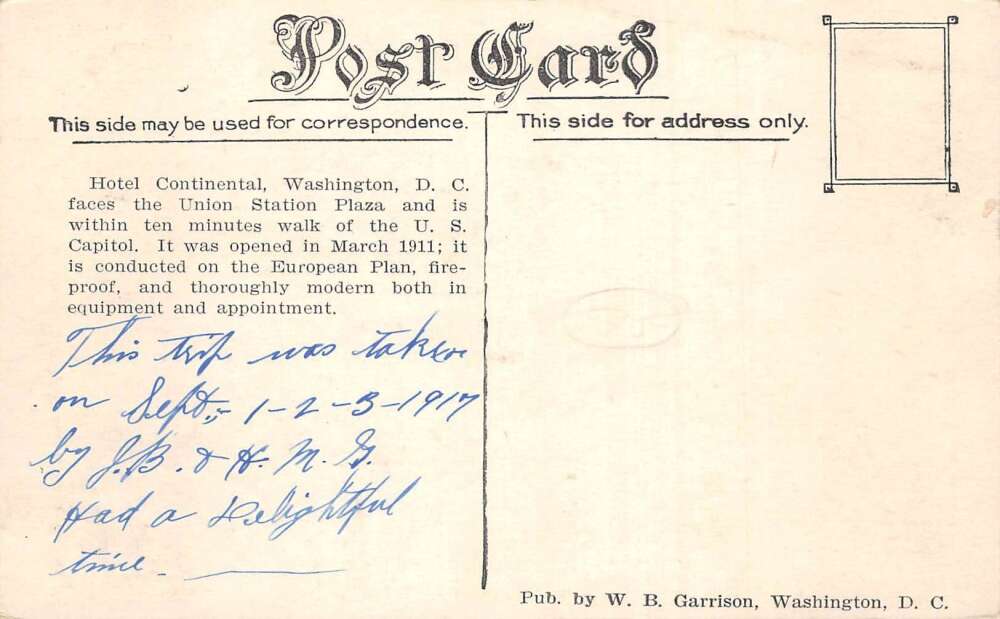 Post Card
This side may be used for correspondence.
This side for address only.
Hotel Continental, Washington, D. C.
faces the Union Station Plaza and is
within ten minutes walk of the U. S.
Capitol. It was opened in March 1911; it
is conducted on the European Plan, fire-
proof, and thoroughly modern both in
equipment and appointment.
This trip was taken
on Sept., - 1-2-3-1917
by J.B. & H. M. G.
Had a Delightful
time.
Pub. by W. B. Garrison, Washington, D. C.